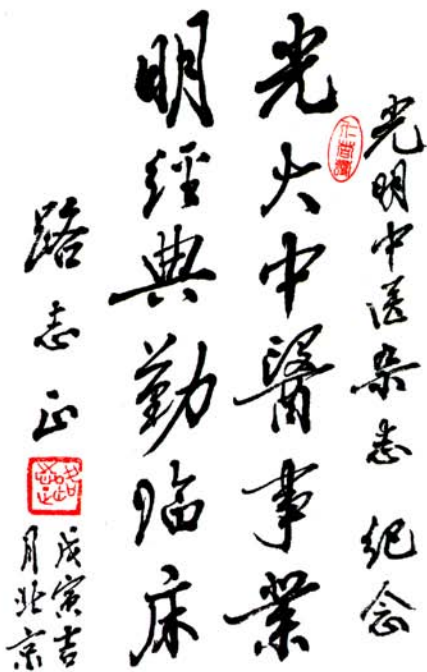 光明中医杂志 纪念
光大中醫事業
明經典勤临床
路志正
戊寅吉
月北京